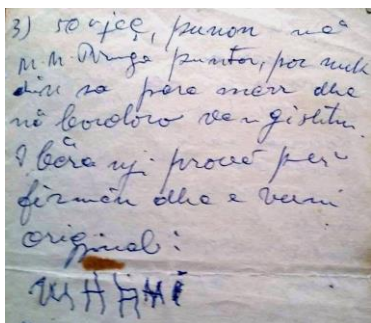 3) 50 vjeç, punon në
N.N. Rruga puntor, por nuk
din sa para merr dhe
në bordoro ven gishtin.
I bëra nji provë për
firmën dhe e vumi
original: